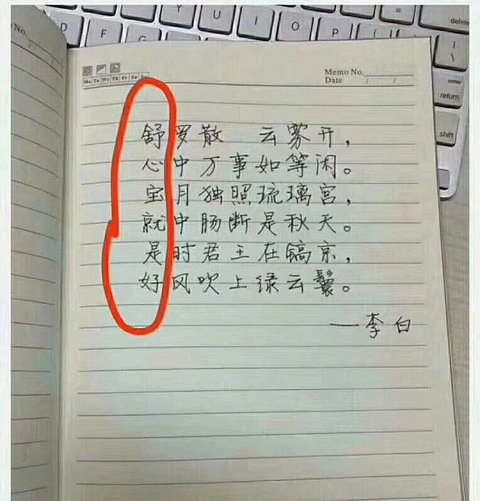 U I O P
delete
return
shift
Memo No.
Date / /
Mo Tu We Th Fr Sa Su
舒罗散 云雾开，
心中万事如等闲。
宝月独照琉璃宫，
就中肠断是秋天。
是时君王在镐京，
好风吹上绿云鬟。
—李白